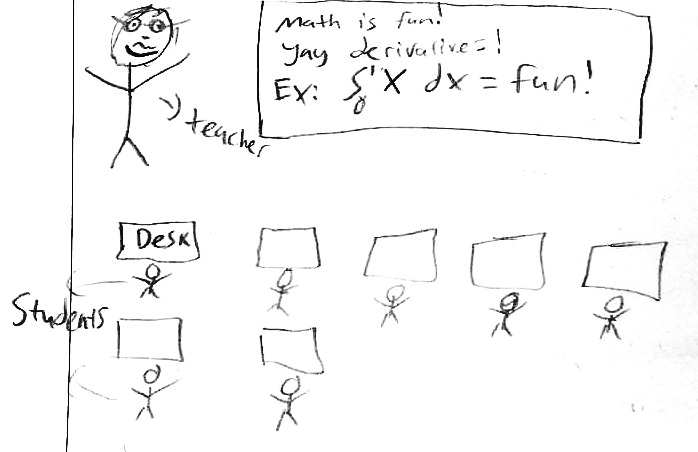 Math is fun!
Yay derivative=!
Ex: ∫₀¹ X dx = fun!
teacher
Desk
Students